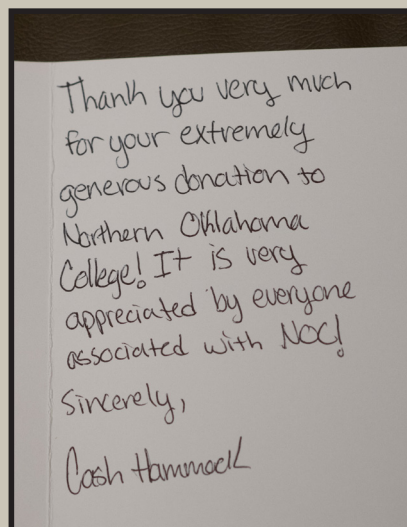 Thank you very much
for your extremely
generous donation to
Northern Oklahoma
College! It is very
appreciated by everyone
associated with NOC!
Sincerely,
Cash Hammock